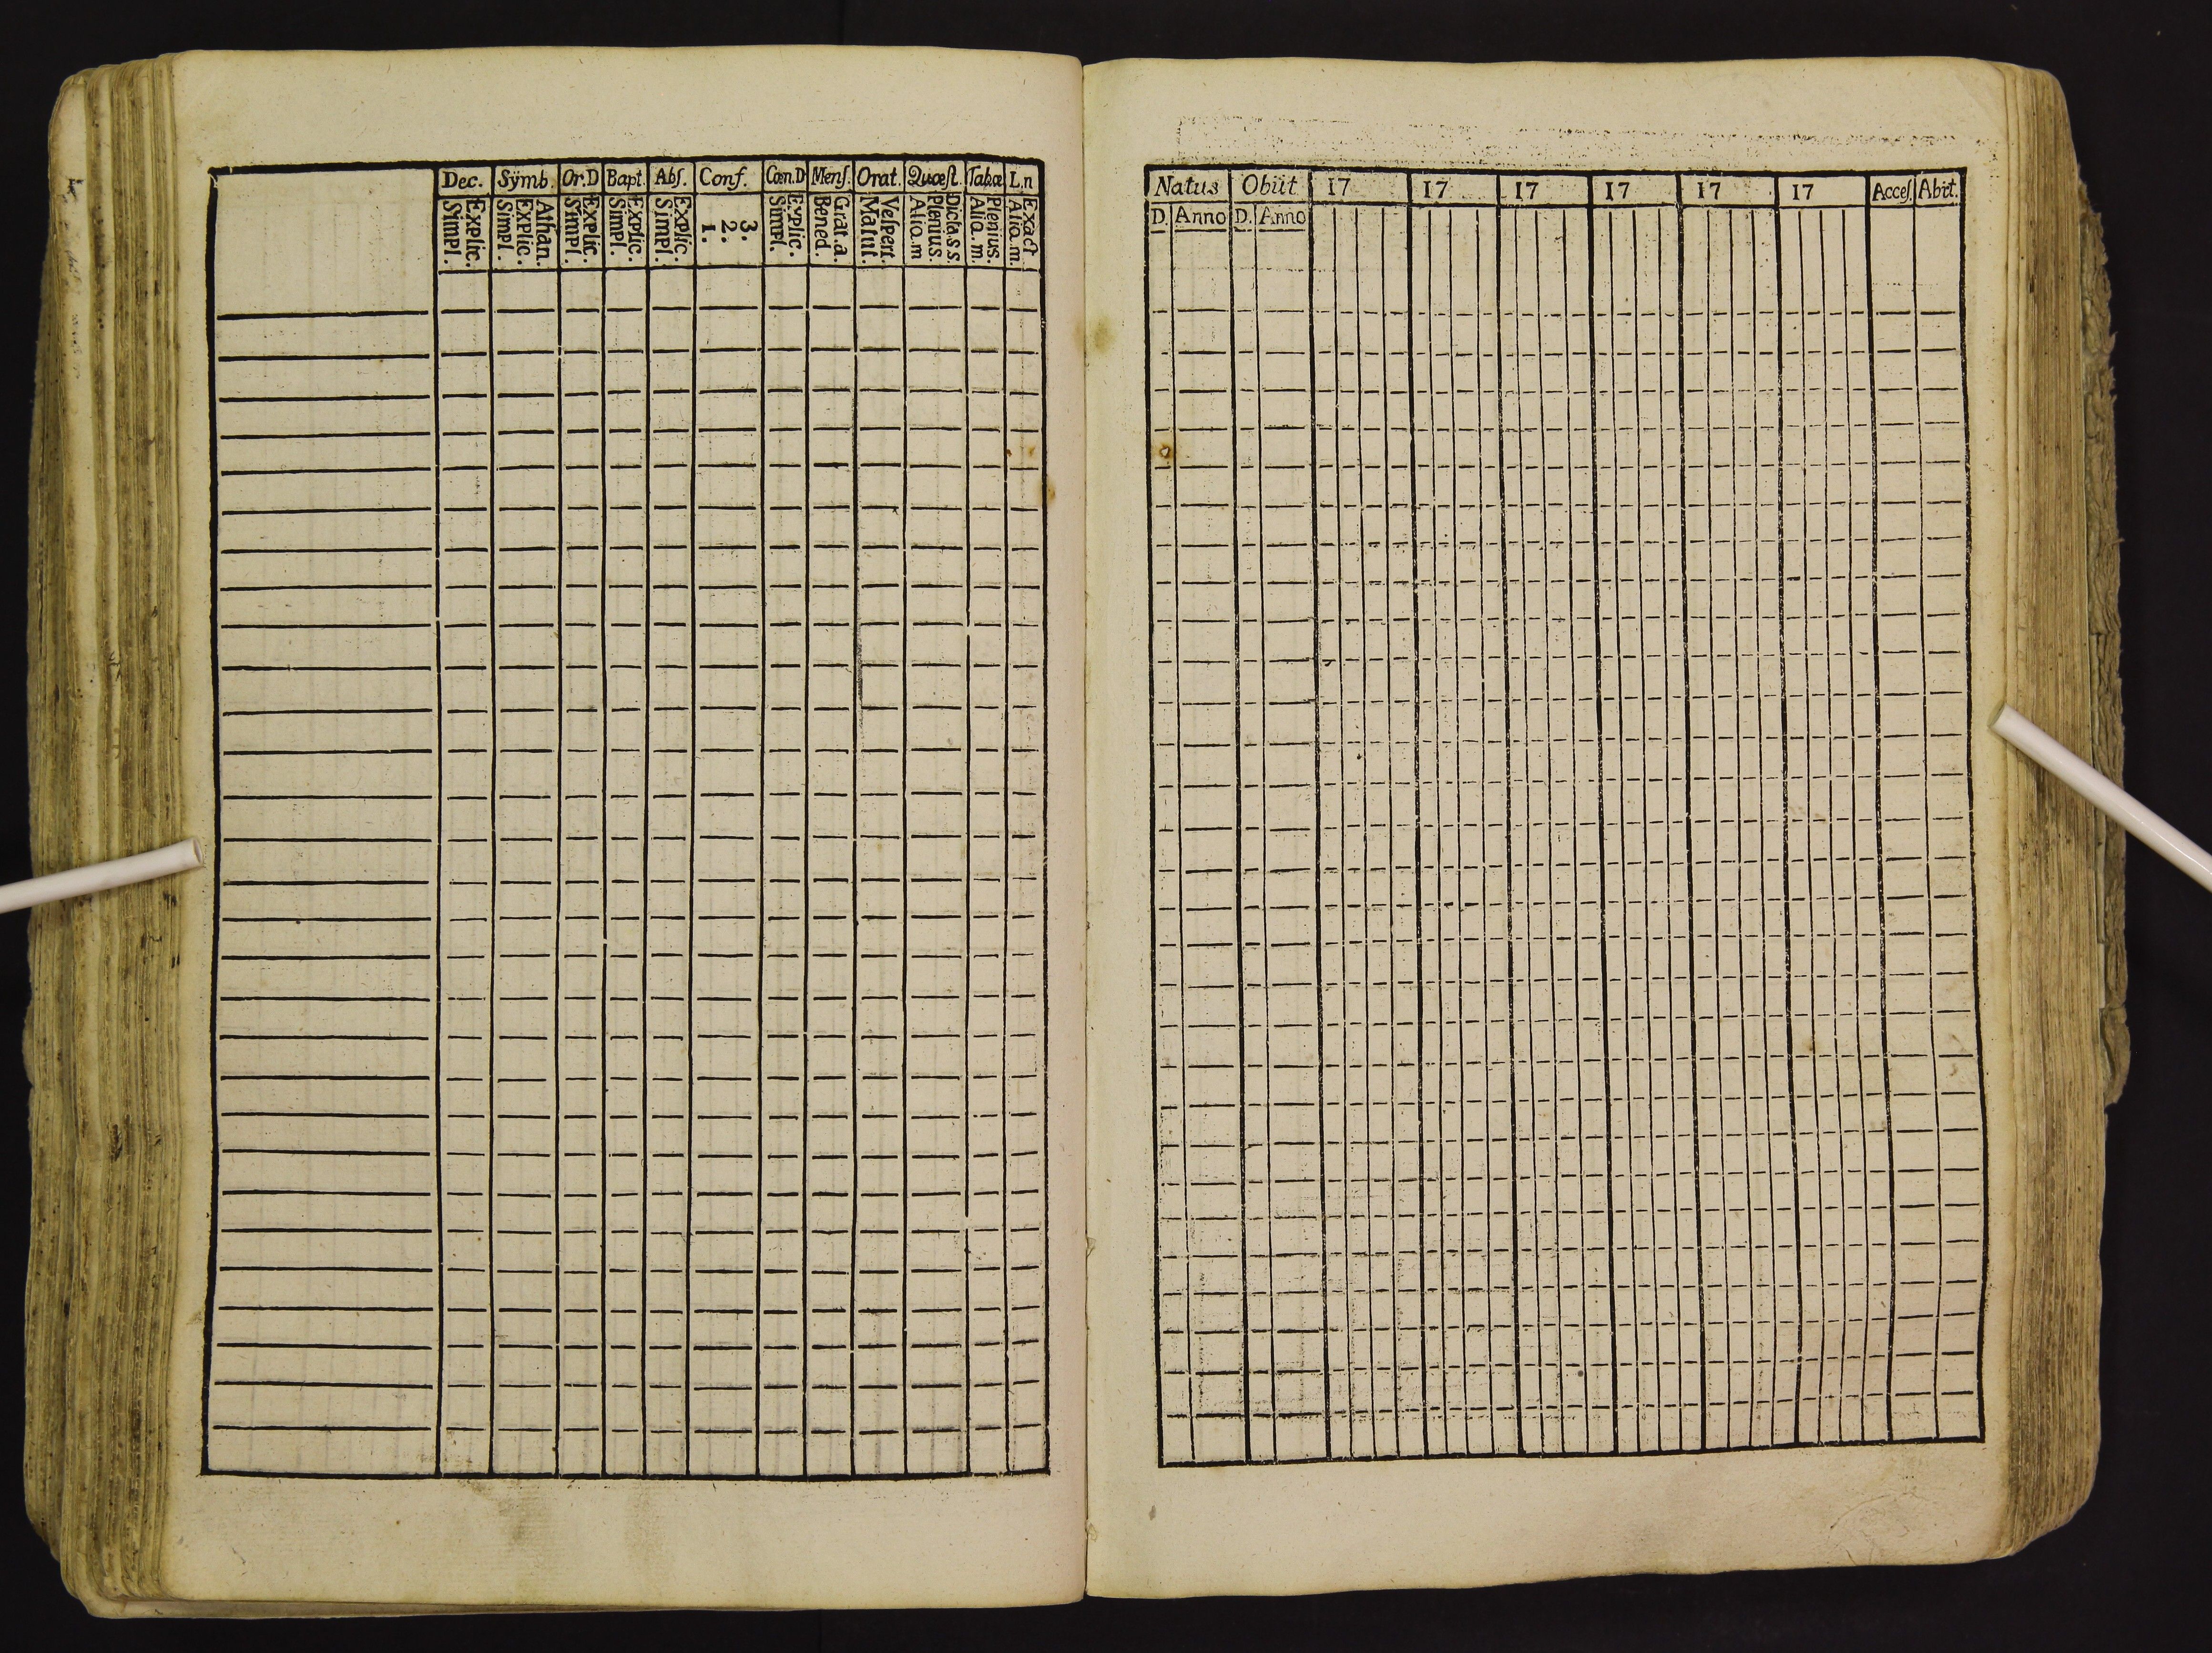 Dec. Sÿmb. Or.D Bapt. Abſ. Conf. Cœn.D Menſ. Orat. Quæſt. Tab.œ L.n
Explic.
Simpl.
Athan.
Explic.
Simpl.
Explic.
Simpl.
Explic.
Simpl.
Explic.
Simpl.
3.
2.
1.
Explic.
Simpl.
Grat.a
Bened.
Veſpert.
Matut.
Dicta.s.s.
Plenius.
Aliq.m
Plenius.
Aliq.m.
Exact
Aliq.m.
Natus Obiit 17 17 17 17 17 17 Acceſ. Abit.
D. Anno D. Anno